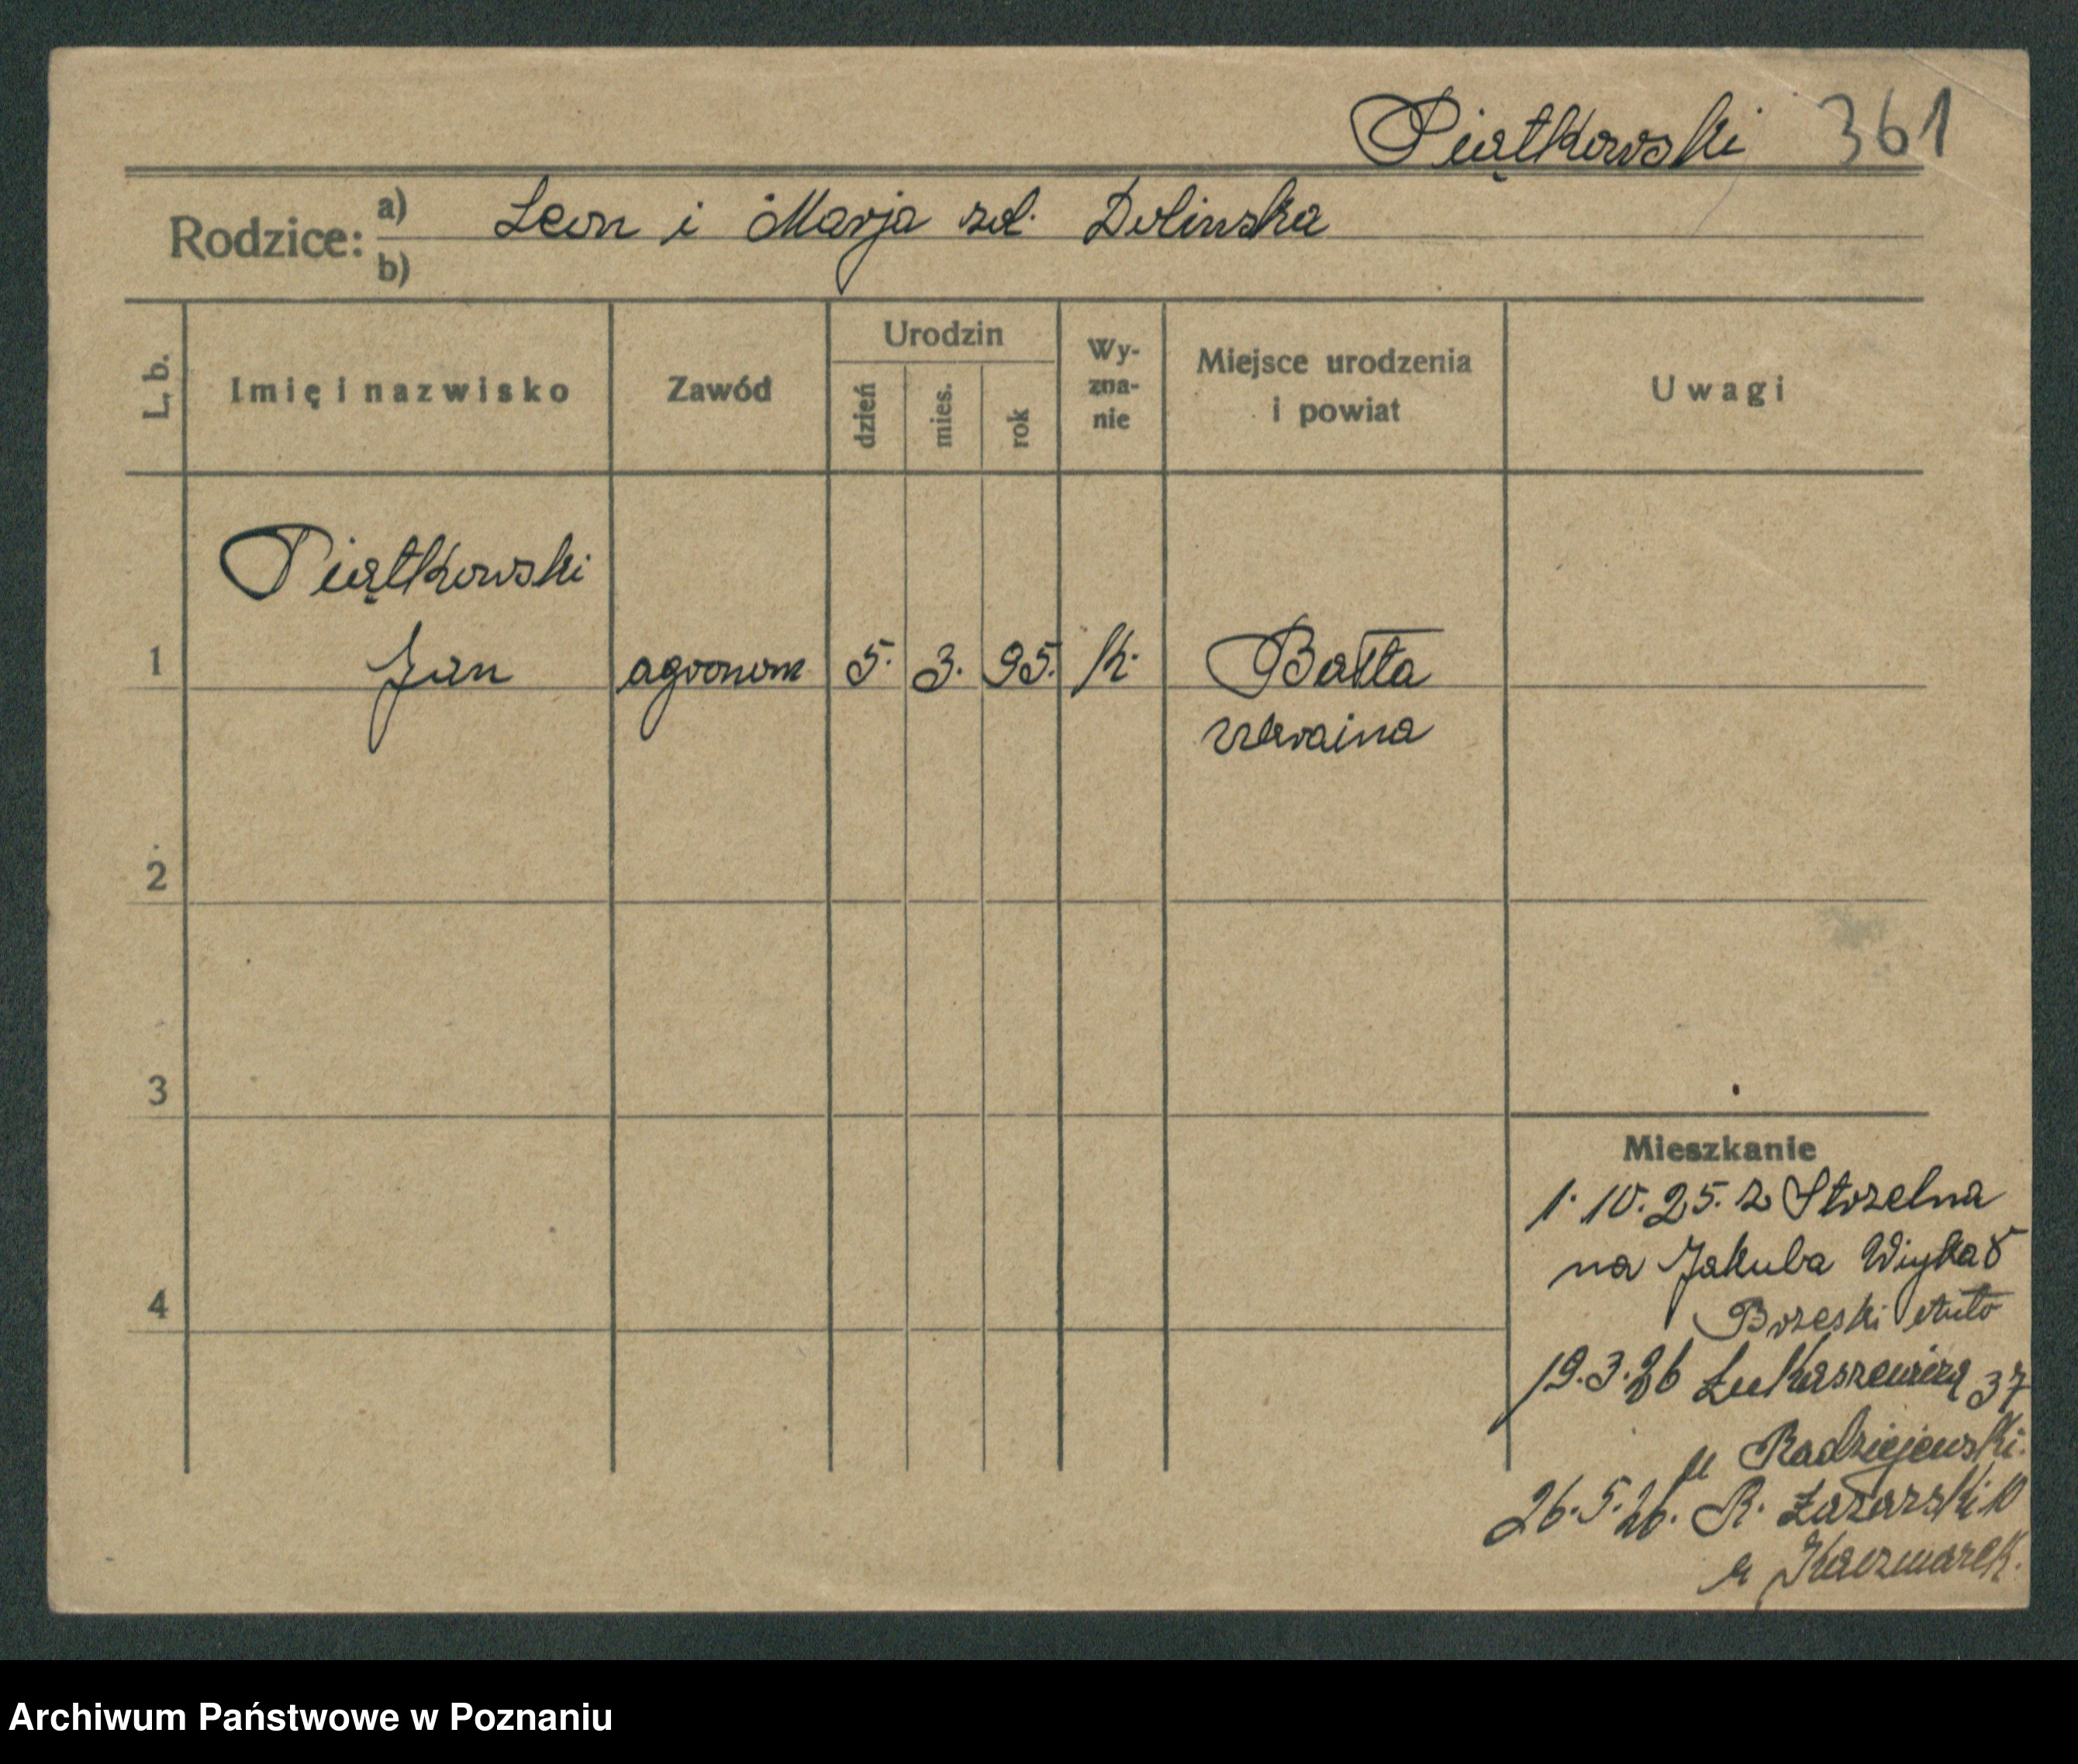 Piątkowski 361
Rodzice: a) Leon i Marja zd. Dolinska
b)
L. b. Imię i nazwisko Zawód Urodzin dzień mies. rok Wy-zna-nie Miejsce urodzenia i powiat Uwagi
Piątkowski
1 Jan agronom 5. 3. 95. k. Bałta
Ukraina
2
3
4
Mieszkanie
1. 10. 25. z Strzelna
na Jakuba Wujka 8
Brzeski Auto
19.3.26 Łukaszewicza 37
u Radziejewski.
26.5.26. R. Łazarski 10
u Kaczmarek.
Archiwum Państwowe w Poznaniu